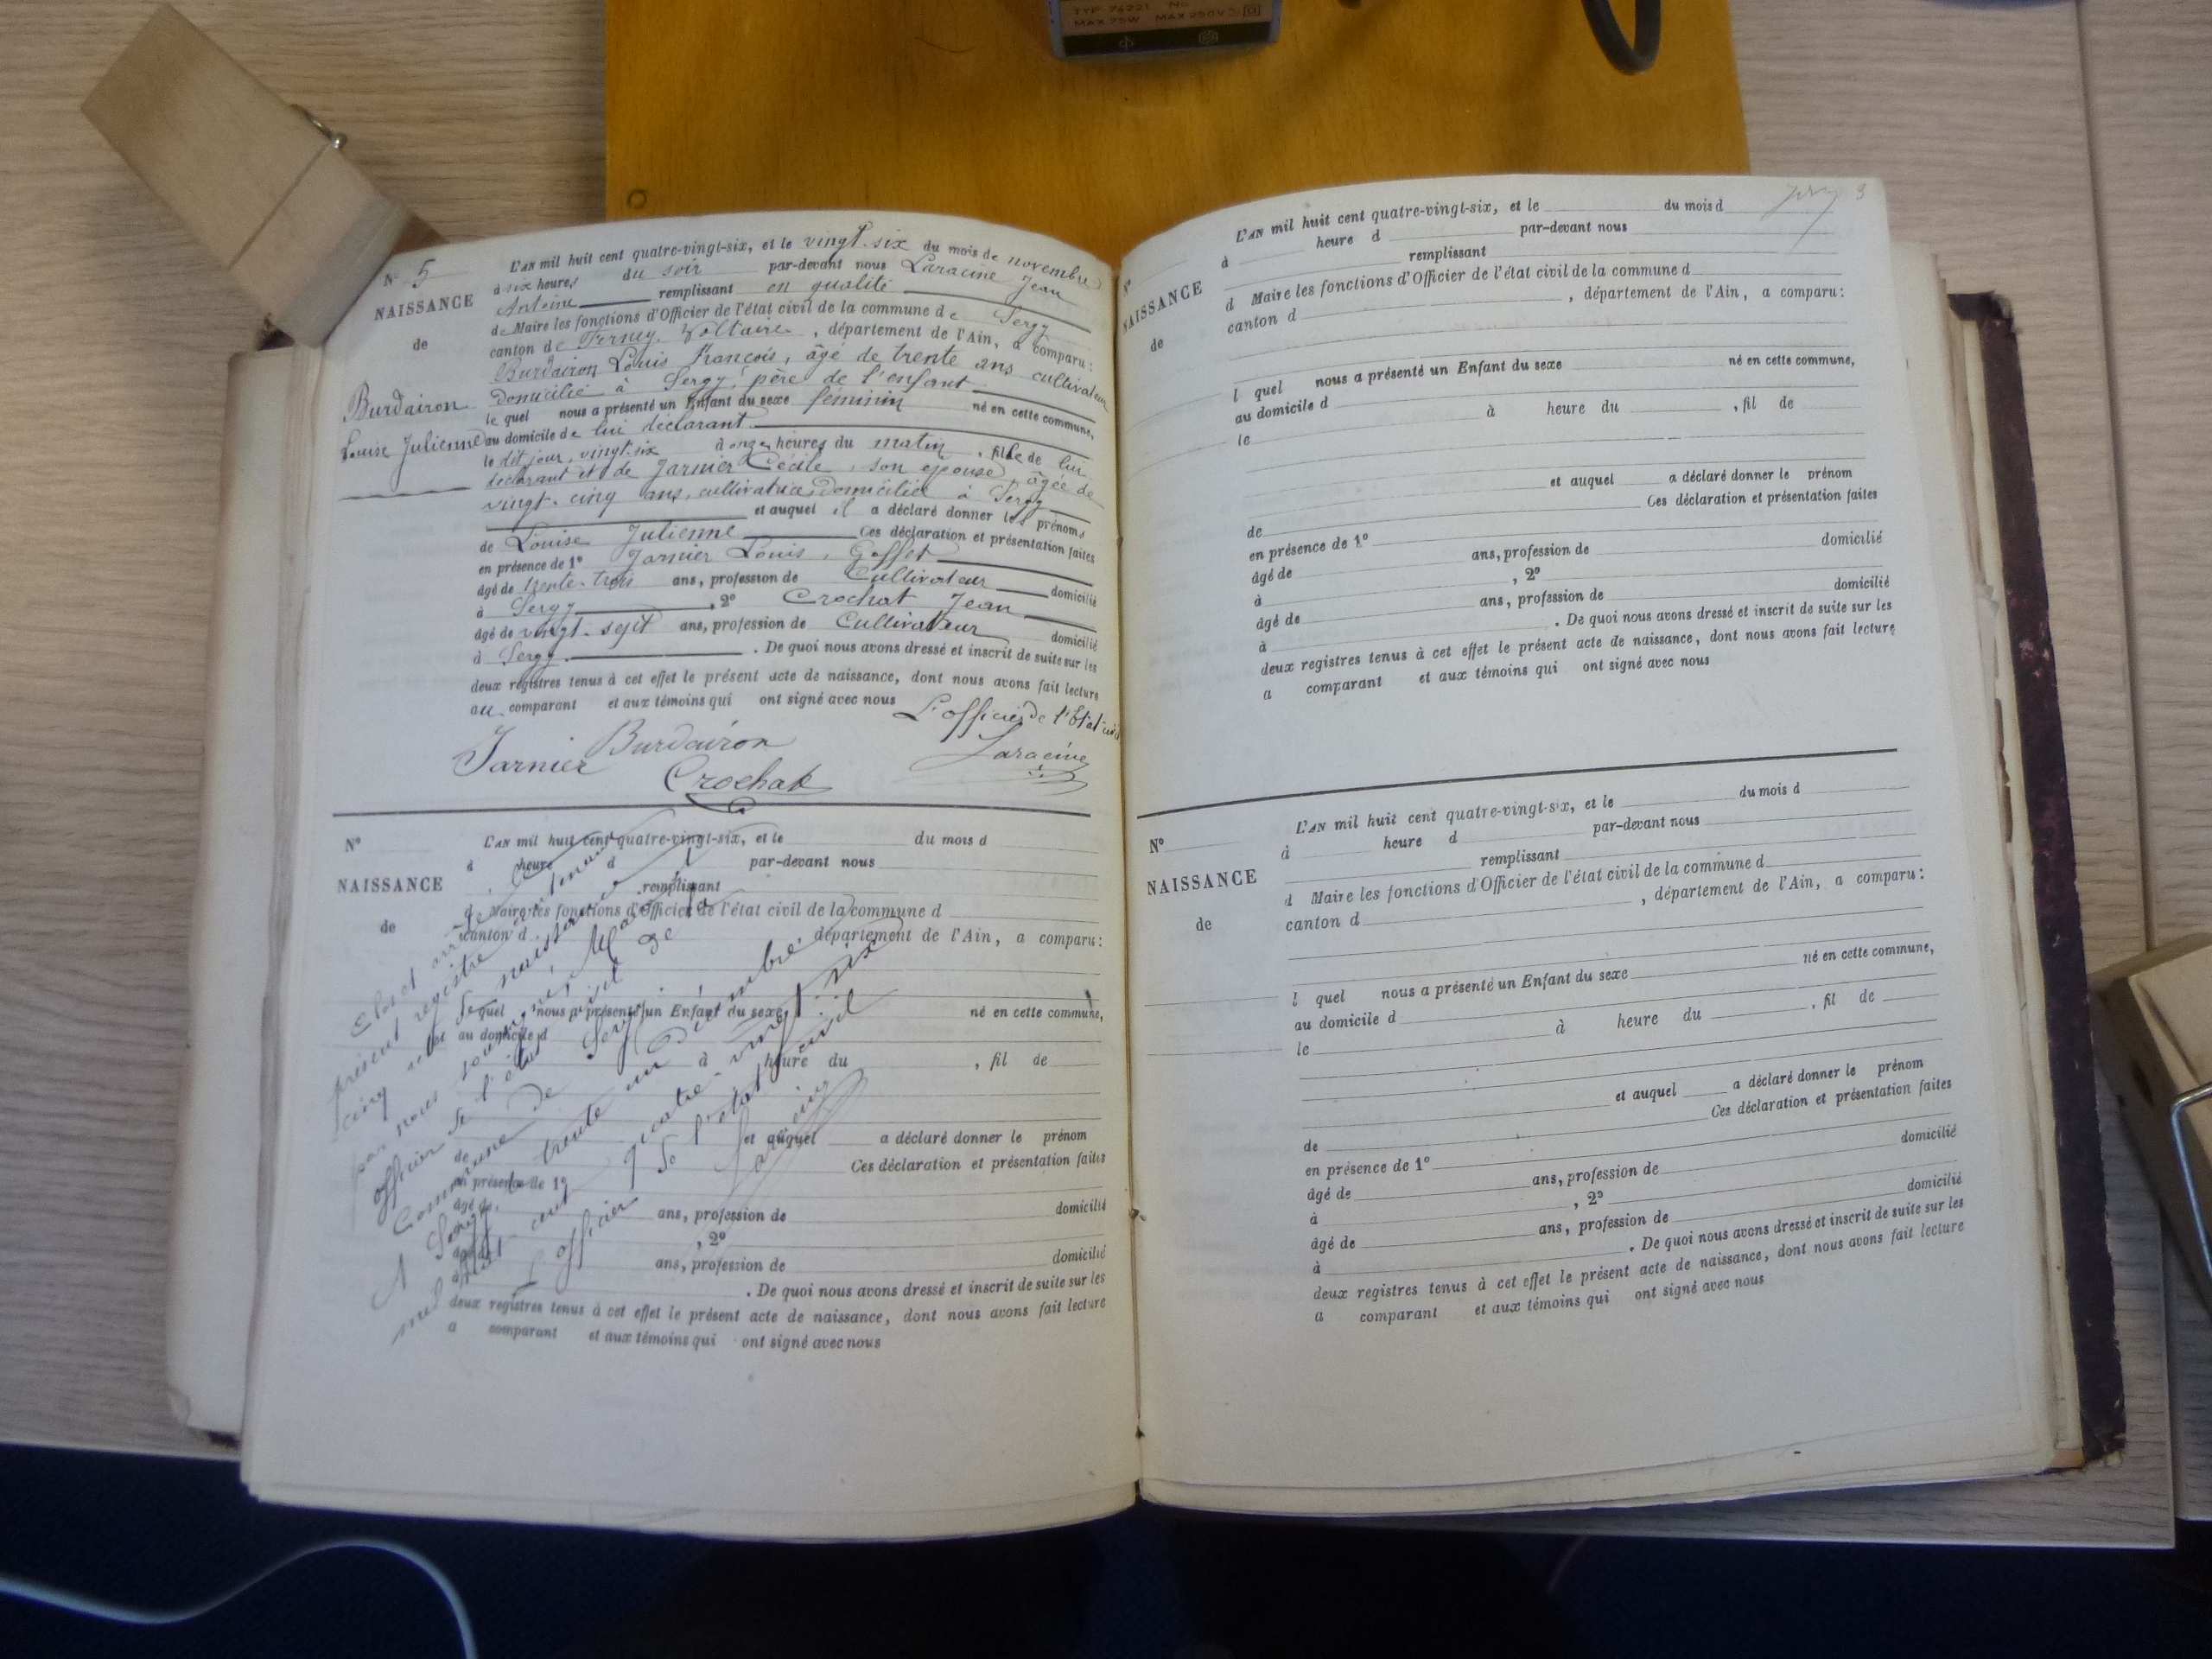 TYP 76221 No
MAX 75W MAX 250V
N° 5
NAISSANCE
de
Burdairon
Louise Julienne
L'AN mil huit cent quatre-vingt-six, et le vingt-six du mois de novembre
à six heures du soir par-devant nous Laracine Jean
Antoine remplissant en qualité
de Maire les fonctions d'Officier de l'état civil de la commune de Sergy
canton de Ferney-Voltaire, département de l'Ain, a comparu:
Burdairon Louis François, âgé de trente ans cultivateur
domicilié à Sergy, père de l'enfant
le quel nous a présenté un Enfant du sexe féminin né en cette commune,
au domicile de lui déclarant
le dit jour vingt-six à onze heures du matin, fille de lui
déclarant et de Jarnier Cécile, son épouse, âgée de
vingt-cinq ans, cultivatrice, domiciliée à Sergy
et auquel il a déclaré donner les prénoms
de Louise Julienne Ces déclaration et présentation faites
en présence de 1° Jarnier Louis, Goffet
âgé de trente-trois ans, profession de Cultivateur domicilié
à Sergy, 2° Crochat Jean
âgé de vingt-sept ans, profession de Cultivateur domicilié
à Sergy. De quoi nous avons dressé et inscrit de suite sur les
deux registres tenus à cet effet le présent acte de naissance, dont nous avons fait lecture
au comparant et aux témoins qui ont signé avec nous
L'officier de l'État civil
Jarnier Burdairon Laracine
Crochat
N°
NAISSANCE
de
L'AN mil huit cent quatre-vingt-six, et le du mois d
à heure d par-devant nous
remplissant
d Maire les fonctions d'Officier de l'état civil de la commune d
canton d département de l'Ain, a comparu:
l quel nous a présenté un Enfant du sexe né en cette commune,
au domicile d
à heure du , fil de
et auquel a déclaré donner le prénom
de Ces déclaration et présentation faites
en présence de 1°
âgé de ans, profession de domicilié
, 2°
âgé de ans, profession de domicilié
à . De quoi nous avons dressé et inscrit de suite sur les
deux registres tenus à cet effet le présent acte de naissance, dont nous avons fait lecture
a comparant et aux témoins qui ont signé avec nous
Clos et arrêté le
présent registre
cinq actes de naissances
par nous soussigné, Maire
officier de l'état civil de
Commune de Sergy
A Sergy, le trente un Décembre
mil huit cent quatre-vingt-six
L'officier de l'état civil
Laracine
3
N°
NAISSANCE
de
L'AN mil huit cent quatre-vingt-six, et le du mois d
à heure d par-devant nous
remplissant
d Maire les fonctions d'Officier de l'état civil de la commune d
canton d , département de l'Ain, a comparu:
l quel nous a présenté un Enfant du sexe né en cette commune,
au domicile d
le à heure du , fil de
et auquel a déclaré donner le prénom
de Ces déclaration et présentation faites
en présence de 1°
âgé de ans, profession de domicilié
à , 2°
âgé de ans, profession de domicilié
à . De quoi nous avons dressé et inscrit de suite sur les
deux registres tenus à cet effet le présent acte de naissance, dont nous avons fait lecture
a comparant et aux témoins qui ont signé avec nous
N°
NAISSANCE
de
L'AN mil huit cent quatre-vingt-six, et le du mois d
à heure d par-devant nous
remplissant
d Maire les fonctions d'Officier de l'état civil de la commune d
canton d , département de l'Ain, a comparu:
l quel nous a présenté un Enfant du sexe né en cette commune,
au domicile d
le à heure du , fil de
et auquel a déclaré donner le prénom
de Ces déclaration et présentation faites
en présence de 1°
âgé de ans, profession de domicilié
à , 2°
âgé de ans, profession de domicilié
à . De quoi nous avons dressé et inscrit de suite sur les
deux registres tenus à cet effet le présent acte de naissance, dont nous avons fait lecture
a comparant et aux témoins qui ont signé avec nous